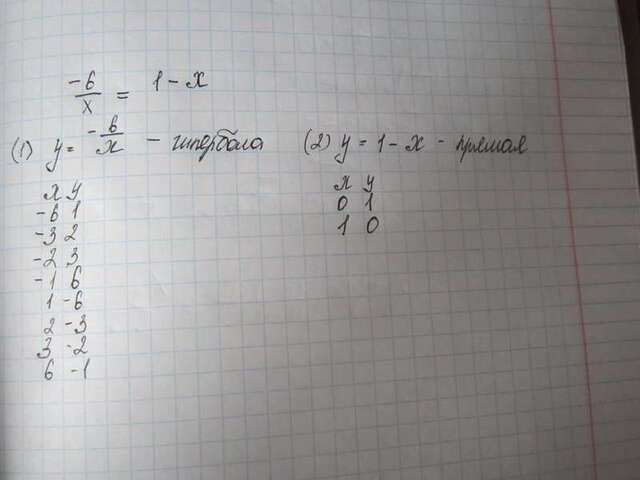 -6/x = 1 - x
(1) y = -6/x - гипербола (2) y = 1 - x - прямая
x y
-6 1
-3 2
-2 3
-1 6
1 -6
2 -3
3 -2
6 -1
x y
0 1
1 0